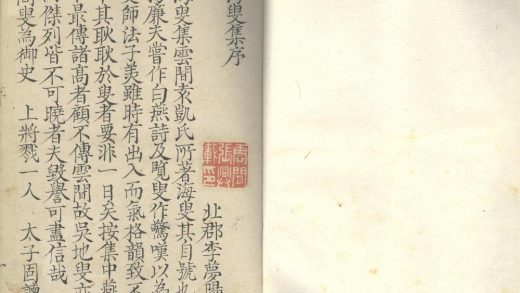 叟集序
北郡李夢陽
叟集雲間袁凱氏所著海叟其自號也
廉夫嘗作白燕詩及覽叟作驚嘆以為
叟師法子美雖時有出入而氣格韻致不
其耿耿於叟者要非一日矣按集中燕
最傳諸髙者顧不傳雲間故吳地叟亦
傑列皆不可曉者夫毀譽可盡信哉
叟為御史 上將戮一人 太子固請